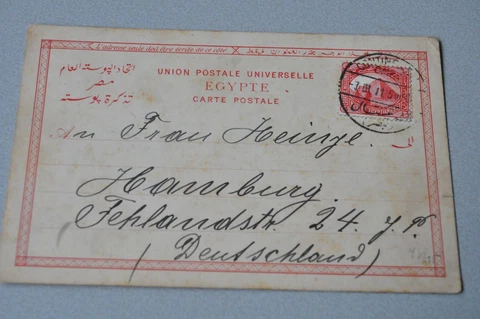 L'adresse seule doit être écrite de ce côté
اتحاد البوستة العام
مصر
تذكرة بوستة
UNION POSTALE UNIVERSELLE
EGYPTE
CARTE POSTALE
An Frau Heinze.
الى
Hamburg.
Fehlandstr. 24. I. P.
(Deutschland)